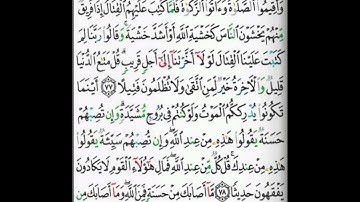 وَأَقِيمُوا۟ ٱلصَّلَوٰةَ وَءَاتُوا۟ ٱلزَّكَوٰةَ فَلَمَّا كُتِبَ عَلَيْهِمُ ٱلْقِتَالُ إِذَا فَرِيقٌ
مِّنْهُمْ يَخْشَوْنَ ٱلنَّاسَ كَخَشْيَةِ ٱللَّهِ أَوْ أَشَدَّ خَشْيَةً وَقَالُوا۟ رَبَّنَا لِمَ
كَتَبْتَ عَلَيْنَا ٱلْقِتَالَ لَوْلَآ أَخَّرْتَنَآ إِلَىٰٓ أَجَلٍ قَرِيبٍ قُلْ مَتَٰعُ ٱلدُّنْيَا
قَلِيلٌ وَٱلْءَاخِرَةُ خَيْرٌ لِّمَنِ ٱتَّقَىٰ وَلَا تُظْلَمُونَ فَتِيلًا ٧٧ أَيْنَمَا
تَكُونُوا۟ يُدْرِككُّمُ ٱلْمَوْتُ وَلَوْ كُنتُمْ فِى بُرُوجٍ مُّشَيَّدَةٍ وَإِن تُصِبْهُمْ
حَسَنَةٌ يَقُولُوا۟ هَٰذِهِۦ مِنْ عِندِ ٱللَّهِ وَإِن تُصِبْهُمْ سَيِّئَةٌ يَقُولُوا۟
هَٰذِهِۦ مِنْ عِندِكَ قُلْ كُلٌّ مِّنْ عِندِ ٱللَّهِ فَمَالِ هَٰٓؤُلَآءِ ٱلْقَوْمِ لَا يَكَادُونَ
يَفْقَهُونَ حَدِيثًا ٧٨ مَّآ أَصَابَكَ مِنْ حَسَنَةٍ فَمِنَ ٱللَّهِ وَمَآ أَصَابَكَ مِن